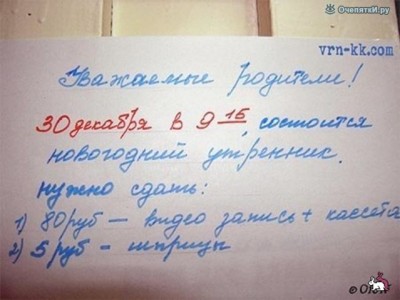 Очепятки.ру
vrn-kk.com
Уважаемые родители!
30 декабря в 9 15 состоится
новогодний утренник.
нужно сдать:
1) 80 руб — видео запись + кассета
2) 5 руб - шприцы